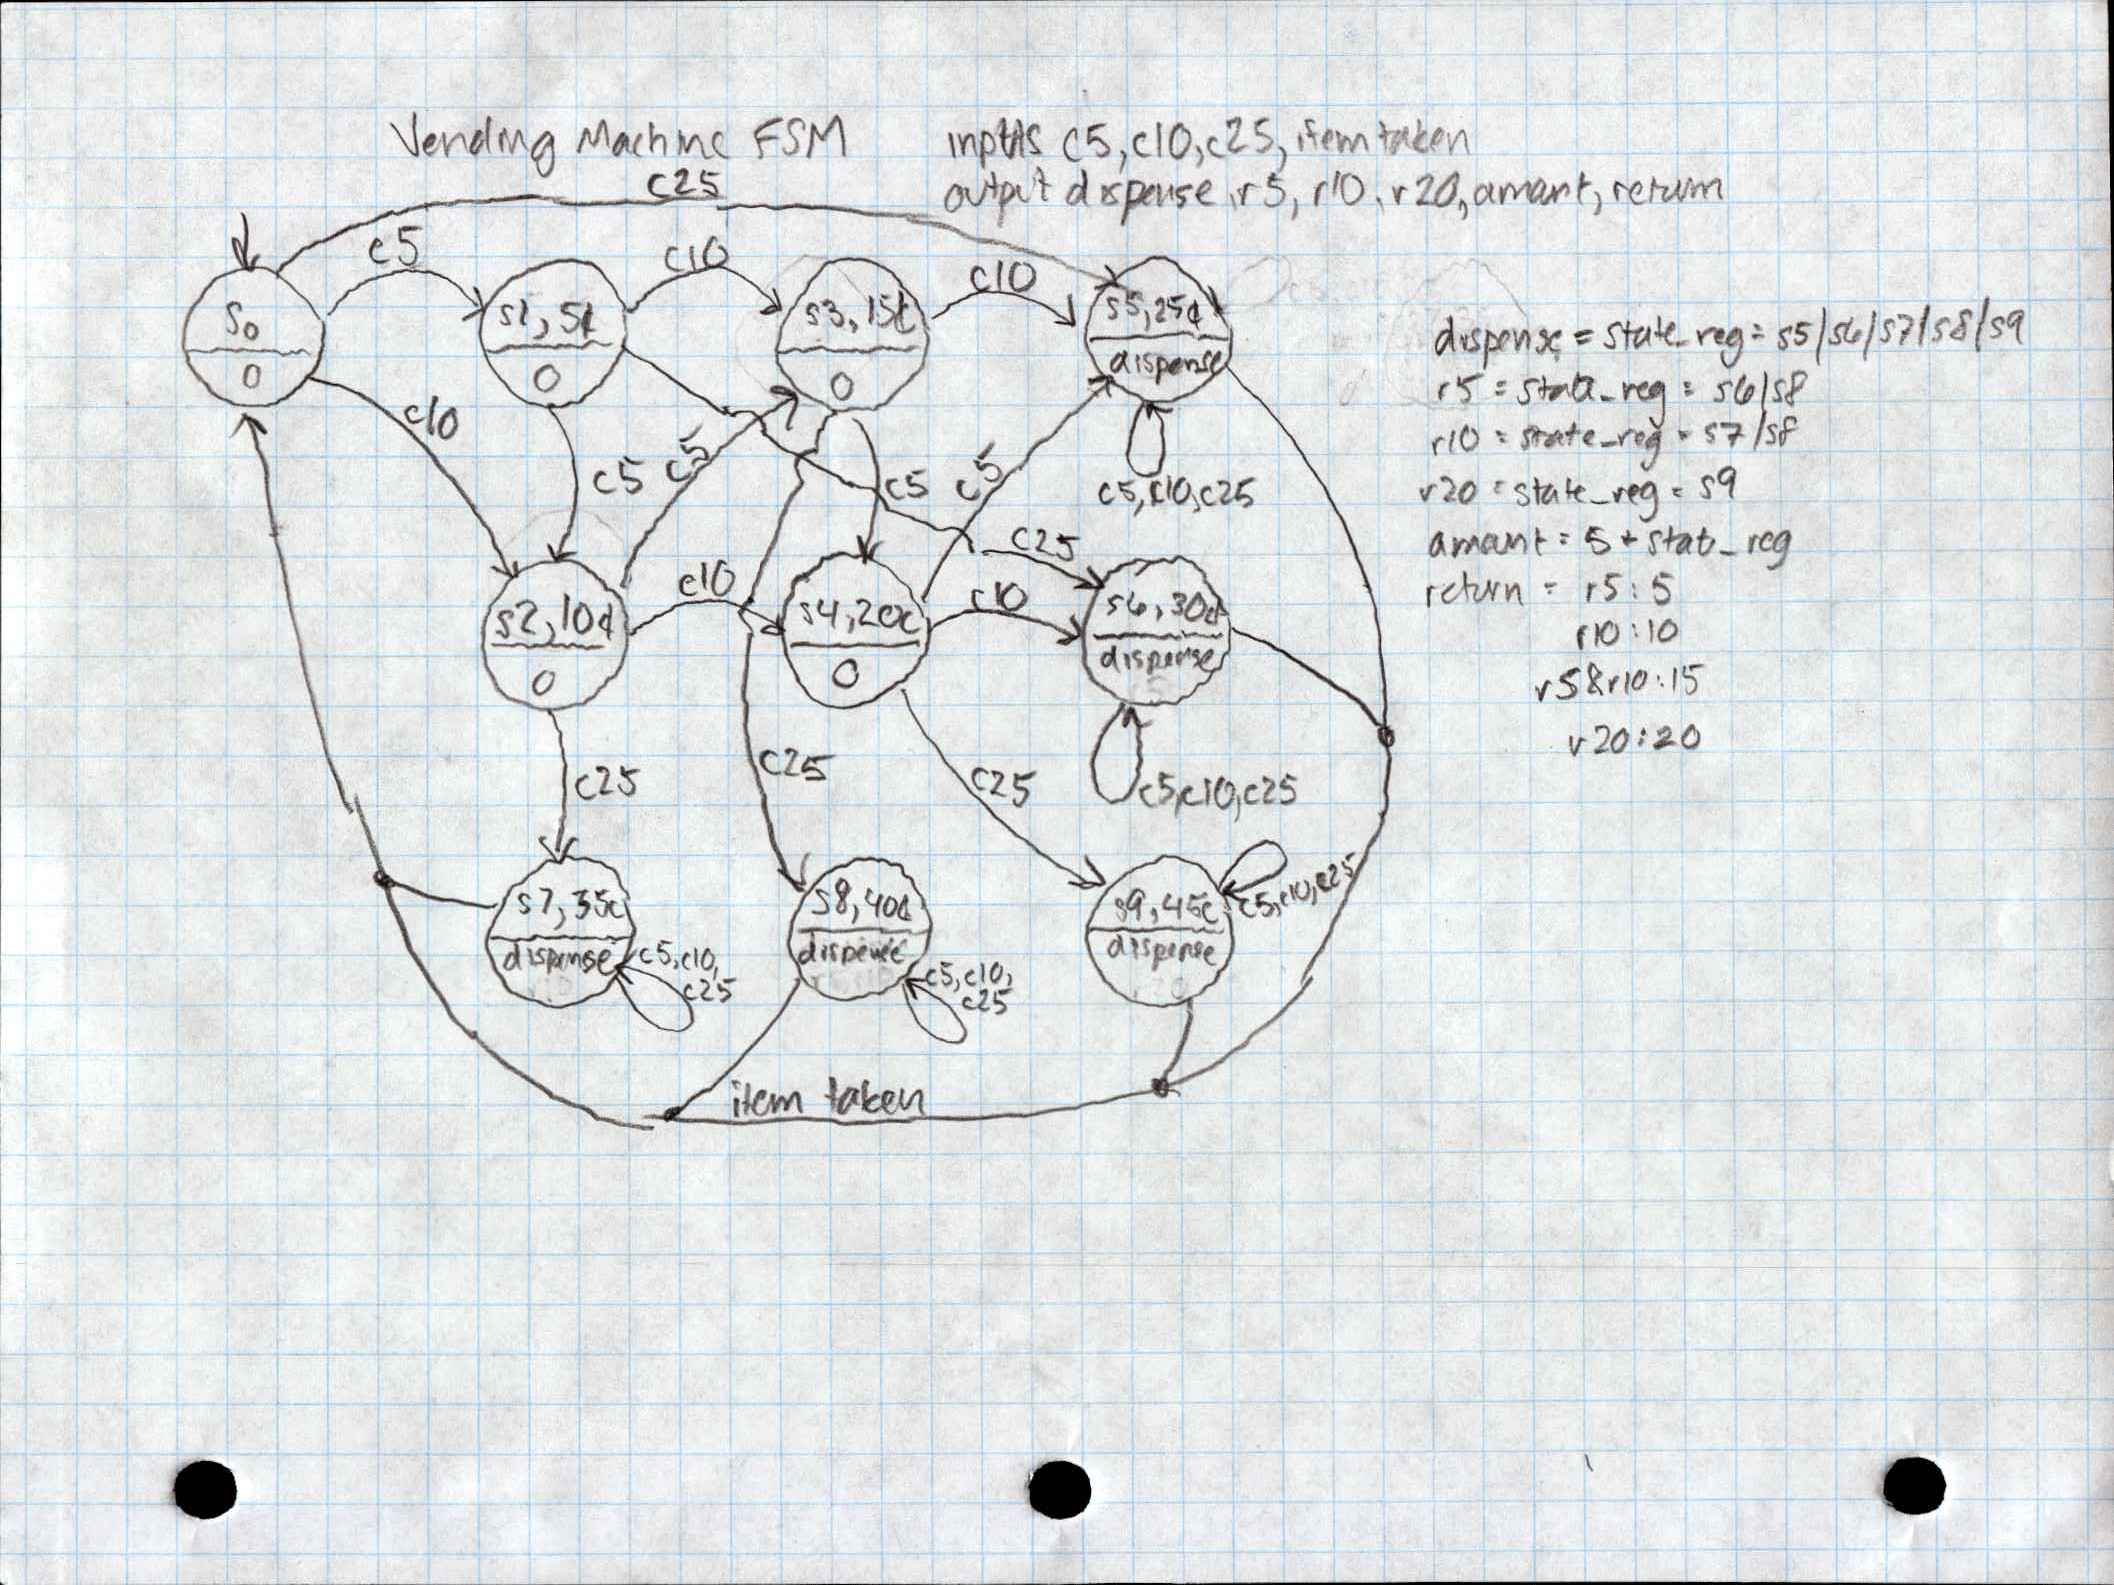 Vending Machine FSM
inputs c5, c10, c25, item taken
output dispense, r5, r10, r20, amant, return
c25
c5
c10
c10
s0
0
s1, 5¢
0
s3, 15¢
0
s5, 25¢
dispense
c10
c5
c5
c5
c5
c5, c10, c25
c25
c10
c10
s2, 10¢
0
s4, 20¢
0
s6, 30¢
dispense
c25
c25
c25
c5, c10, c25
s7, 35¢
dispense
c5, c10,
c25
s8, 40¢
dispense
c5, c10,
c25
s9, 45¢
dispense
c5, c10, c25
item taken
dispense = state_reg = s5/s6/s7/s8/s9
r5 = state_reg = s6/s8
r10 = state_reg = s7/s8
r20 = state_reg = s9
amant = 5 * stat_reg
return = r5: 5
r10: 10
r5&r10: 15
r20: 20